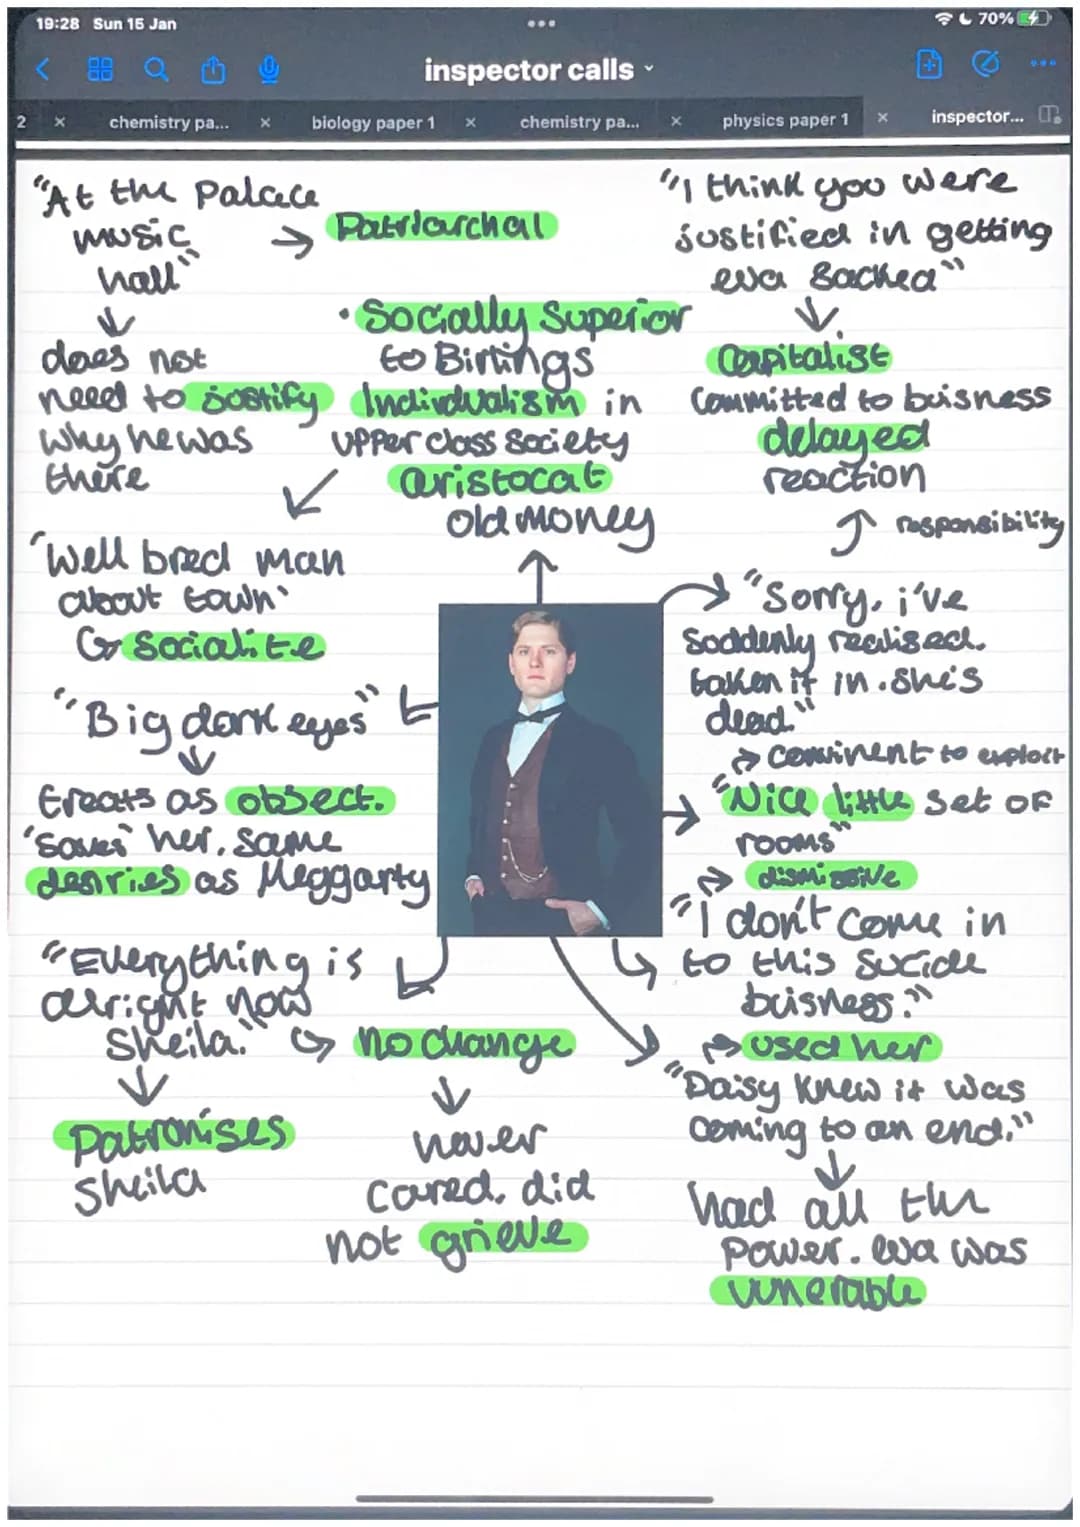 19:28 Sun 15 Jan
70%
inspector calls
2 × chemistry pa... × biology paper 1 × chemistry pa... × physics paper 1 × inspector...
"At the Palace
music
hall"
→ Patriarchal
↓
does not
need to justify
why he was
there
• Socially Superior
to Birlings
Individualism in
upper class society
aristocat
old money
"I think you were
justified in getting
eva sacked"
↓
Capitalist
committed to buisness
delayed
reaction
responsibility
"Well bred man
about town"
↳ Socialite
"Sorry, i've
suddenly realised.
taken it in. she's
dead."
"Big dark eyes"
↓
treats as object.
'saves' her, same
desries as Meggarty
→ convinent to exploit
"Nice little set of
rooms"
→ dismissive
"I don't come in
to this sucide
buisness."
→ used her
"Everything is
alright now
Sheila."
↳ no change
↓
Patronises
Sheila
↓
never
cared. did
not grieve
"Daisy knew it was
coming to an end."
↓
had all the
power. eva was
vunerable